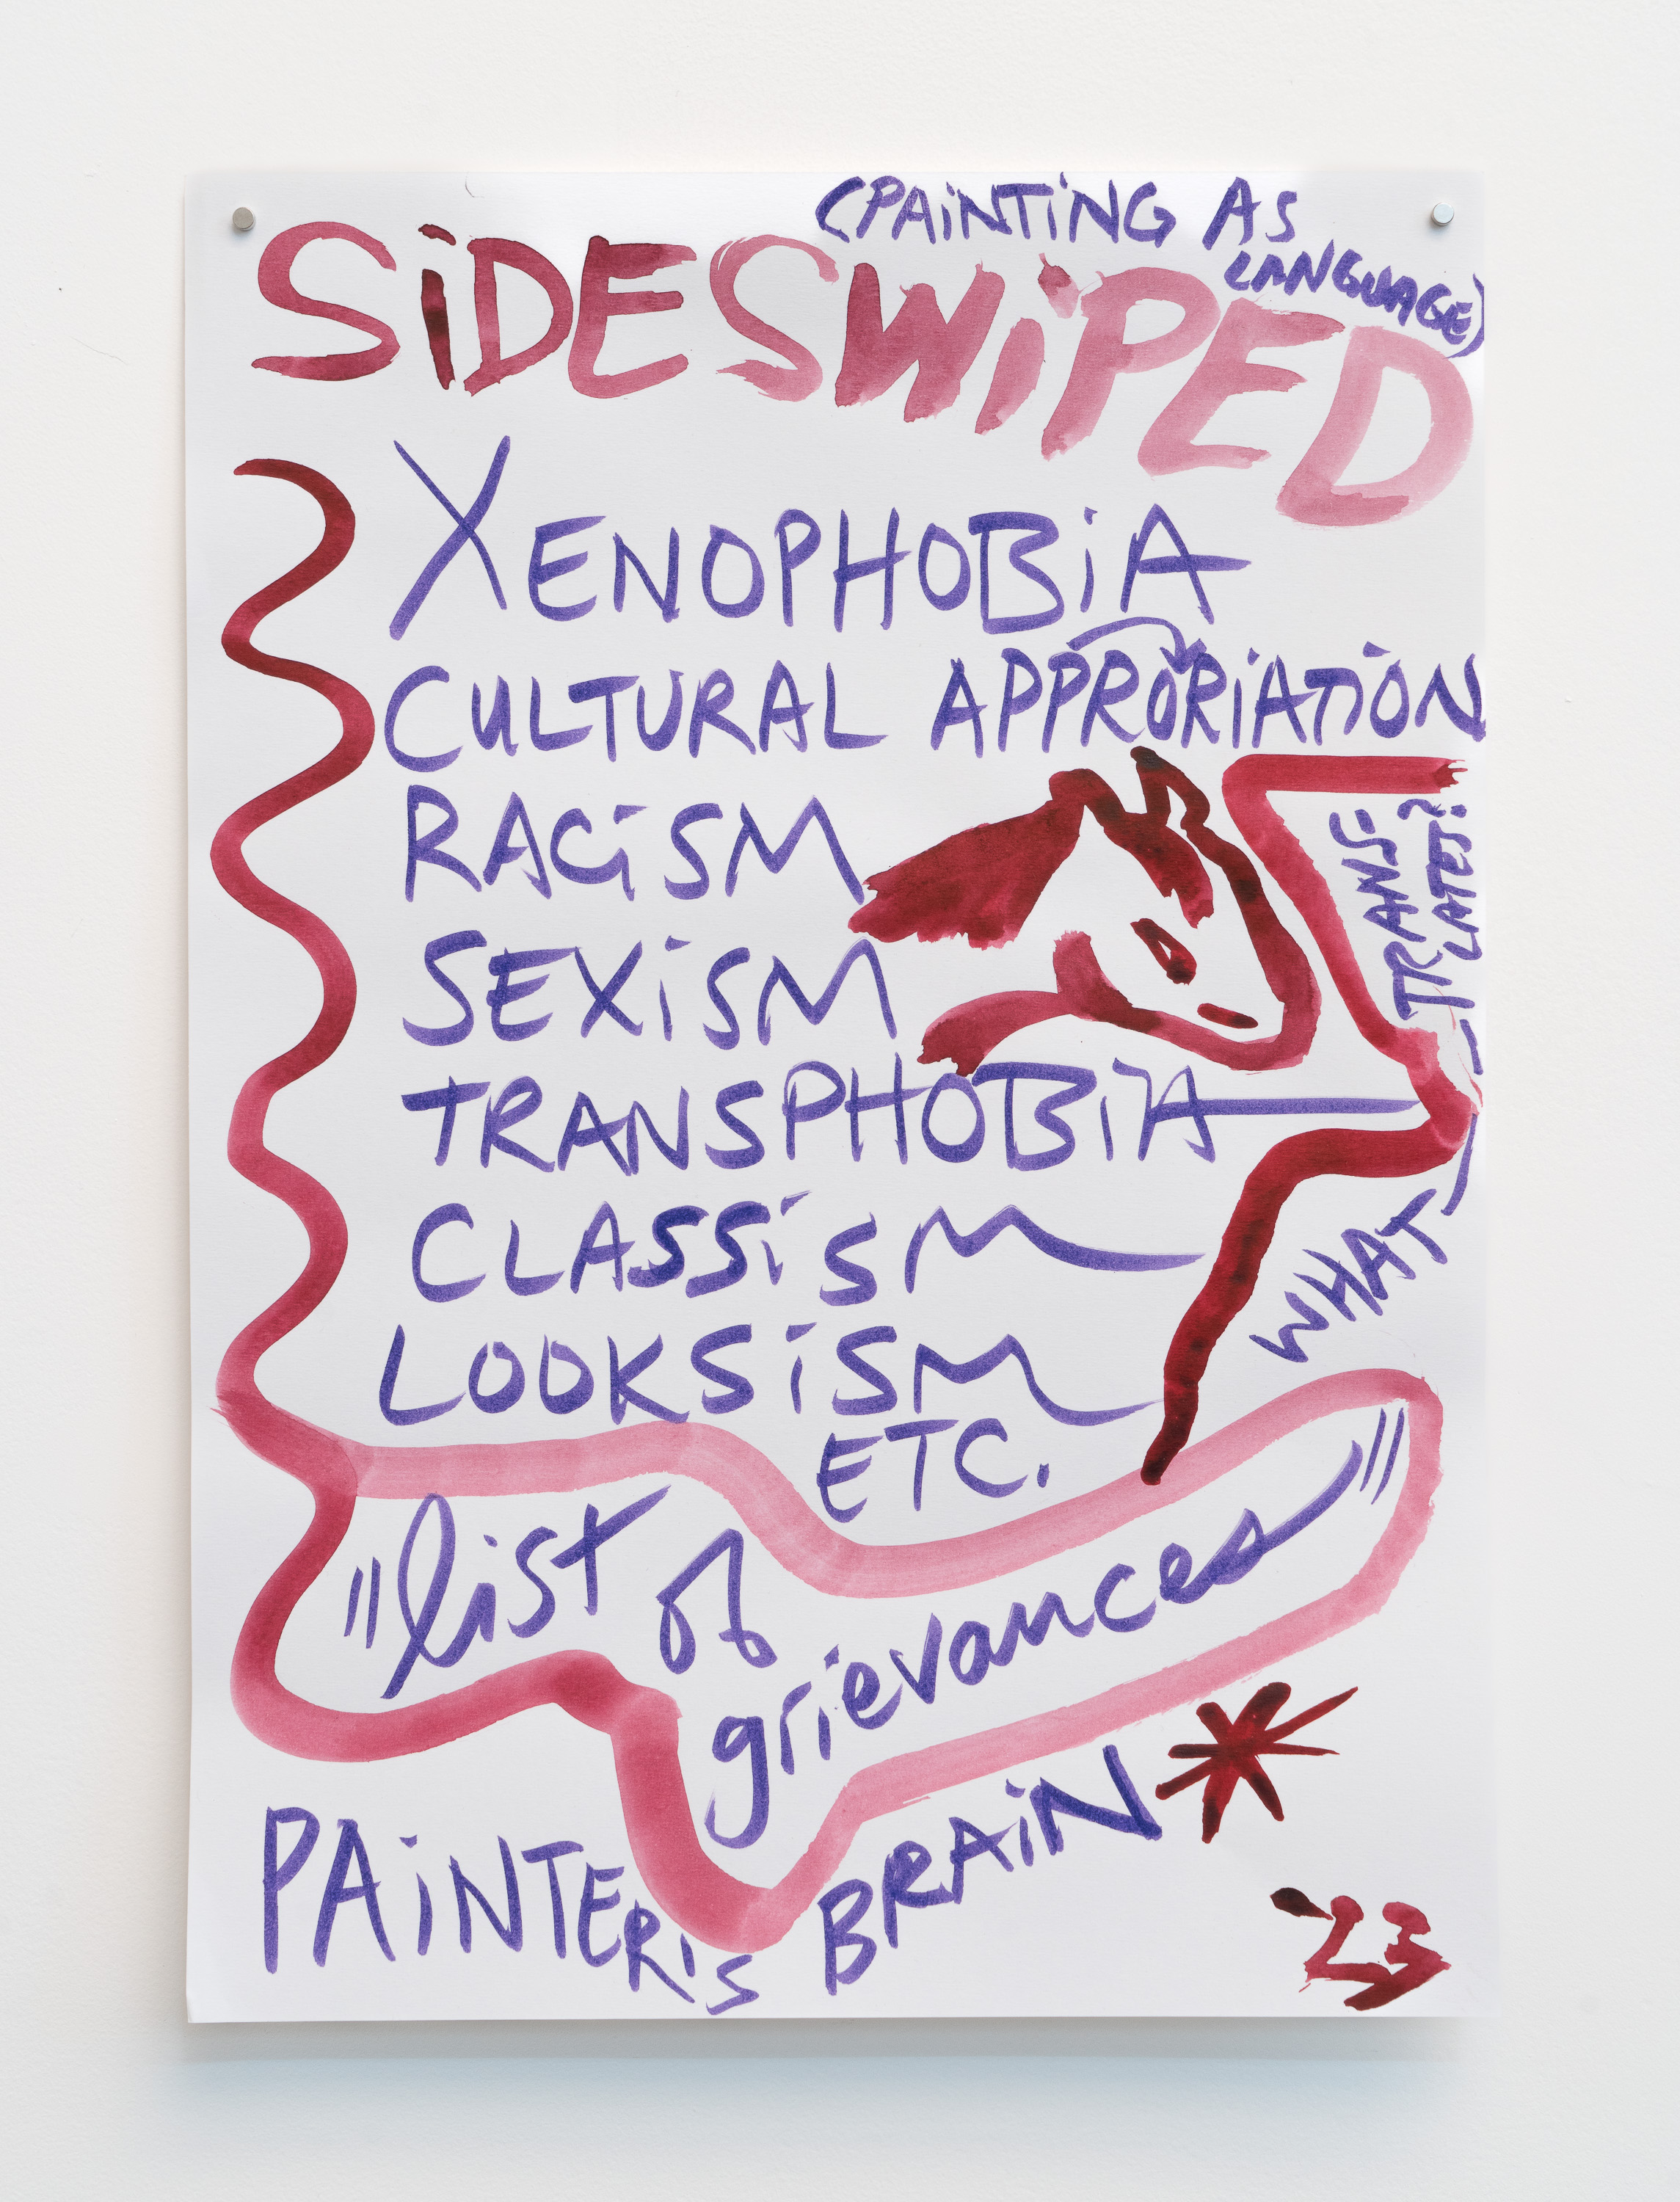 (PAiNTiNG AS
LANGUAGE)
SiDESWiPED
XENOPHOBiA
CULTURAL APPRORiATiON
RACiSM
SEXiSM
TRANSPHOBiA
CLASSiSM
LOOKSiSM
ETC.
WHAT
TRANS-
LATES?
"list of
grievances"
PAiNTER'S BRAiN*
'23